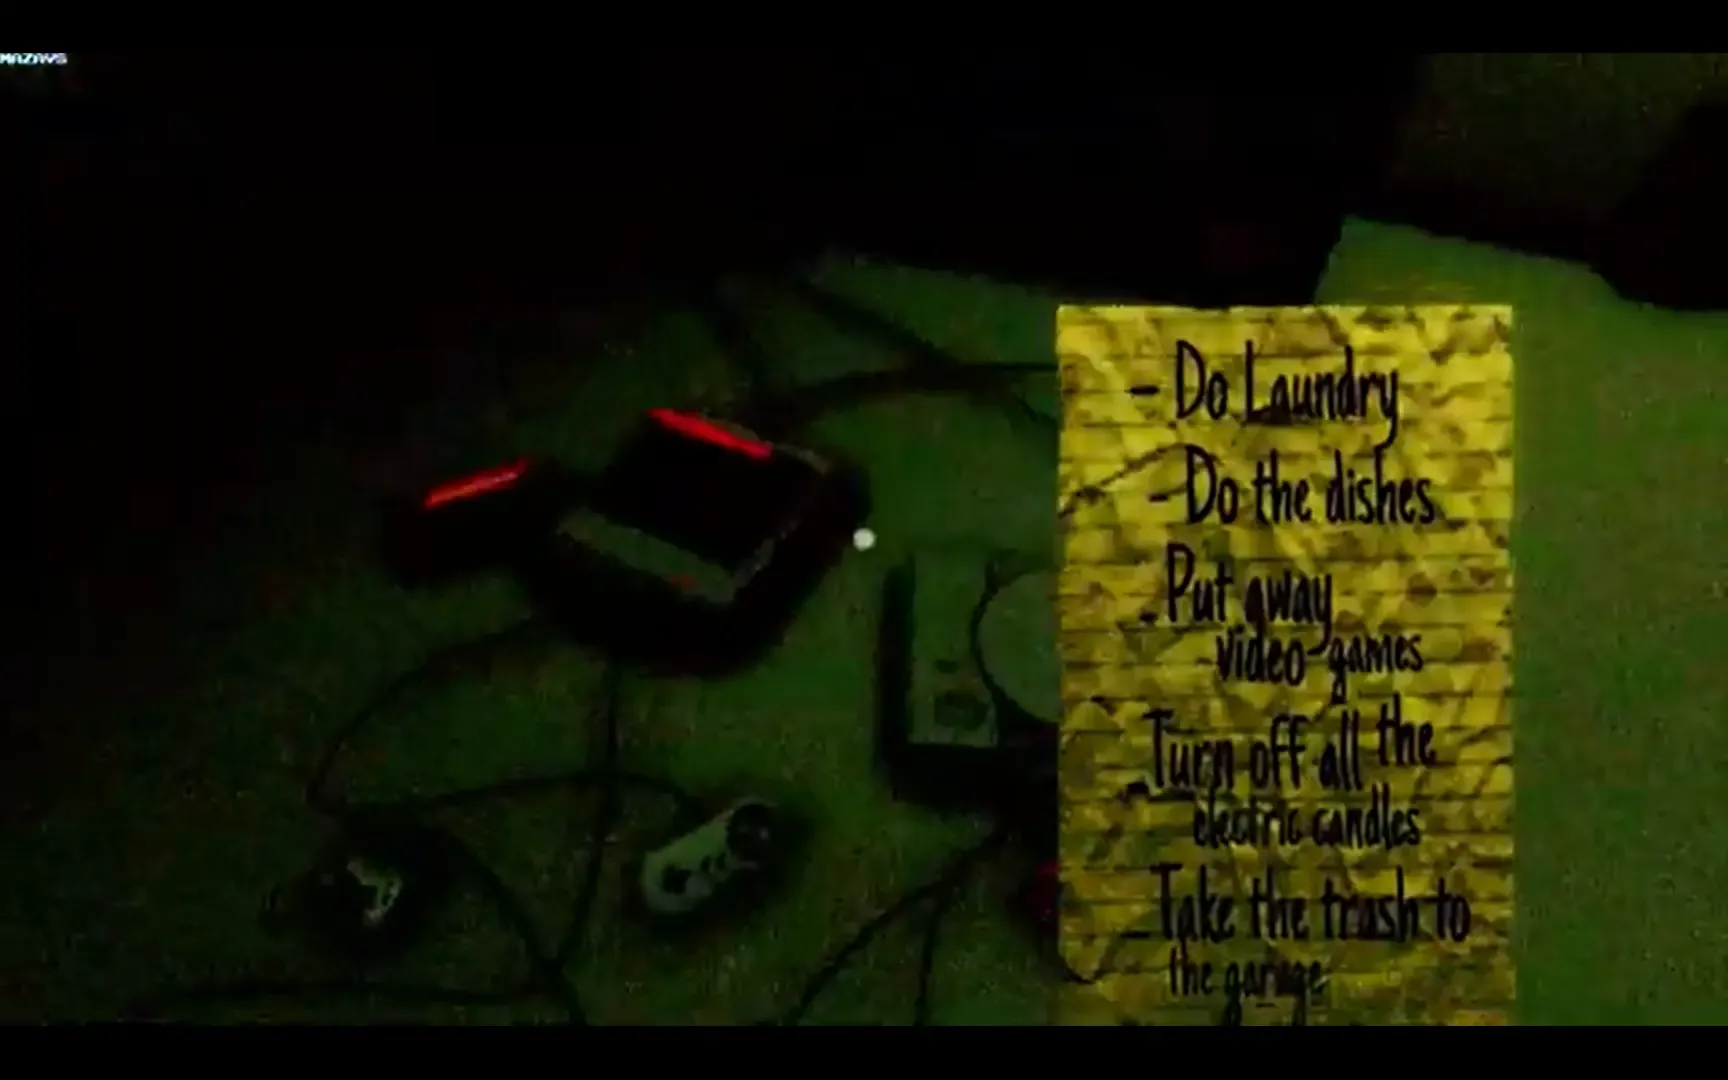 MAZAVS
- Do Laundry
- Do the dishes
- Put away
video games
- Turn off all the
electric candles
- Take the trash to
the garage